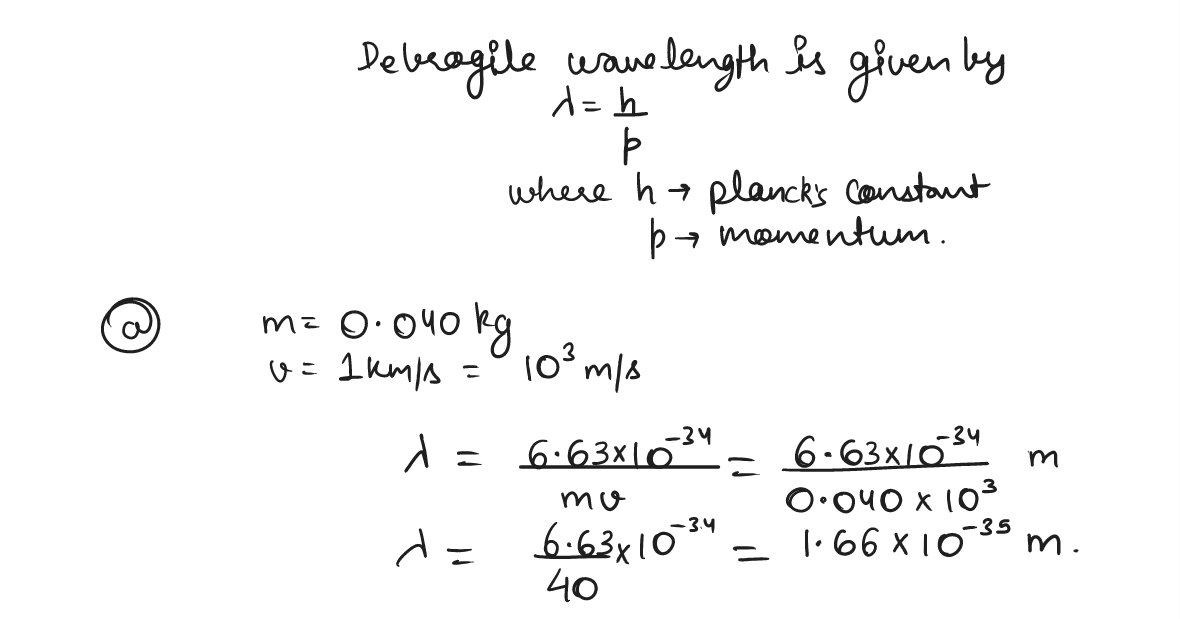 Debrogile wavelength is given by
λ = h/p
where h → planck's constant
p → momentum.
(a) m = 0.040 kg
v = 1 km/s = 10³ m/s
λ = 6.63×10⁻³⁴/mv = 6.63×10⁻³⁴/0.040 × 10³ m
λ = 6.63/40 ×10⁻³⁴ = 1.66 × 10⁻³⁵ m.